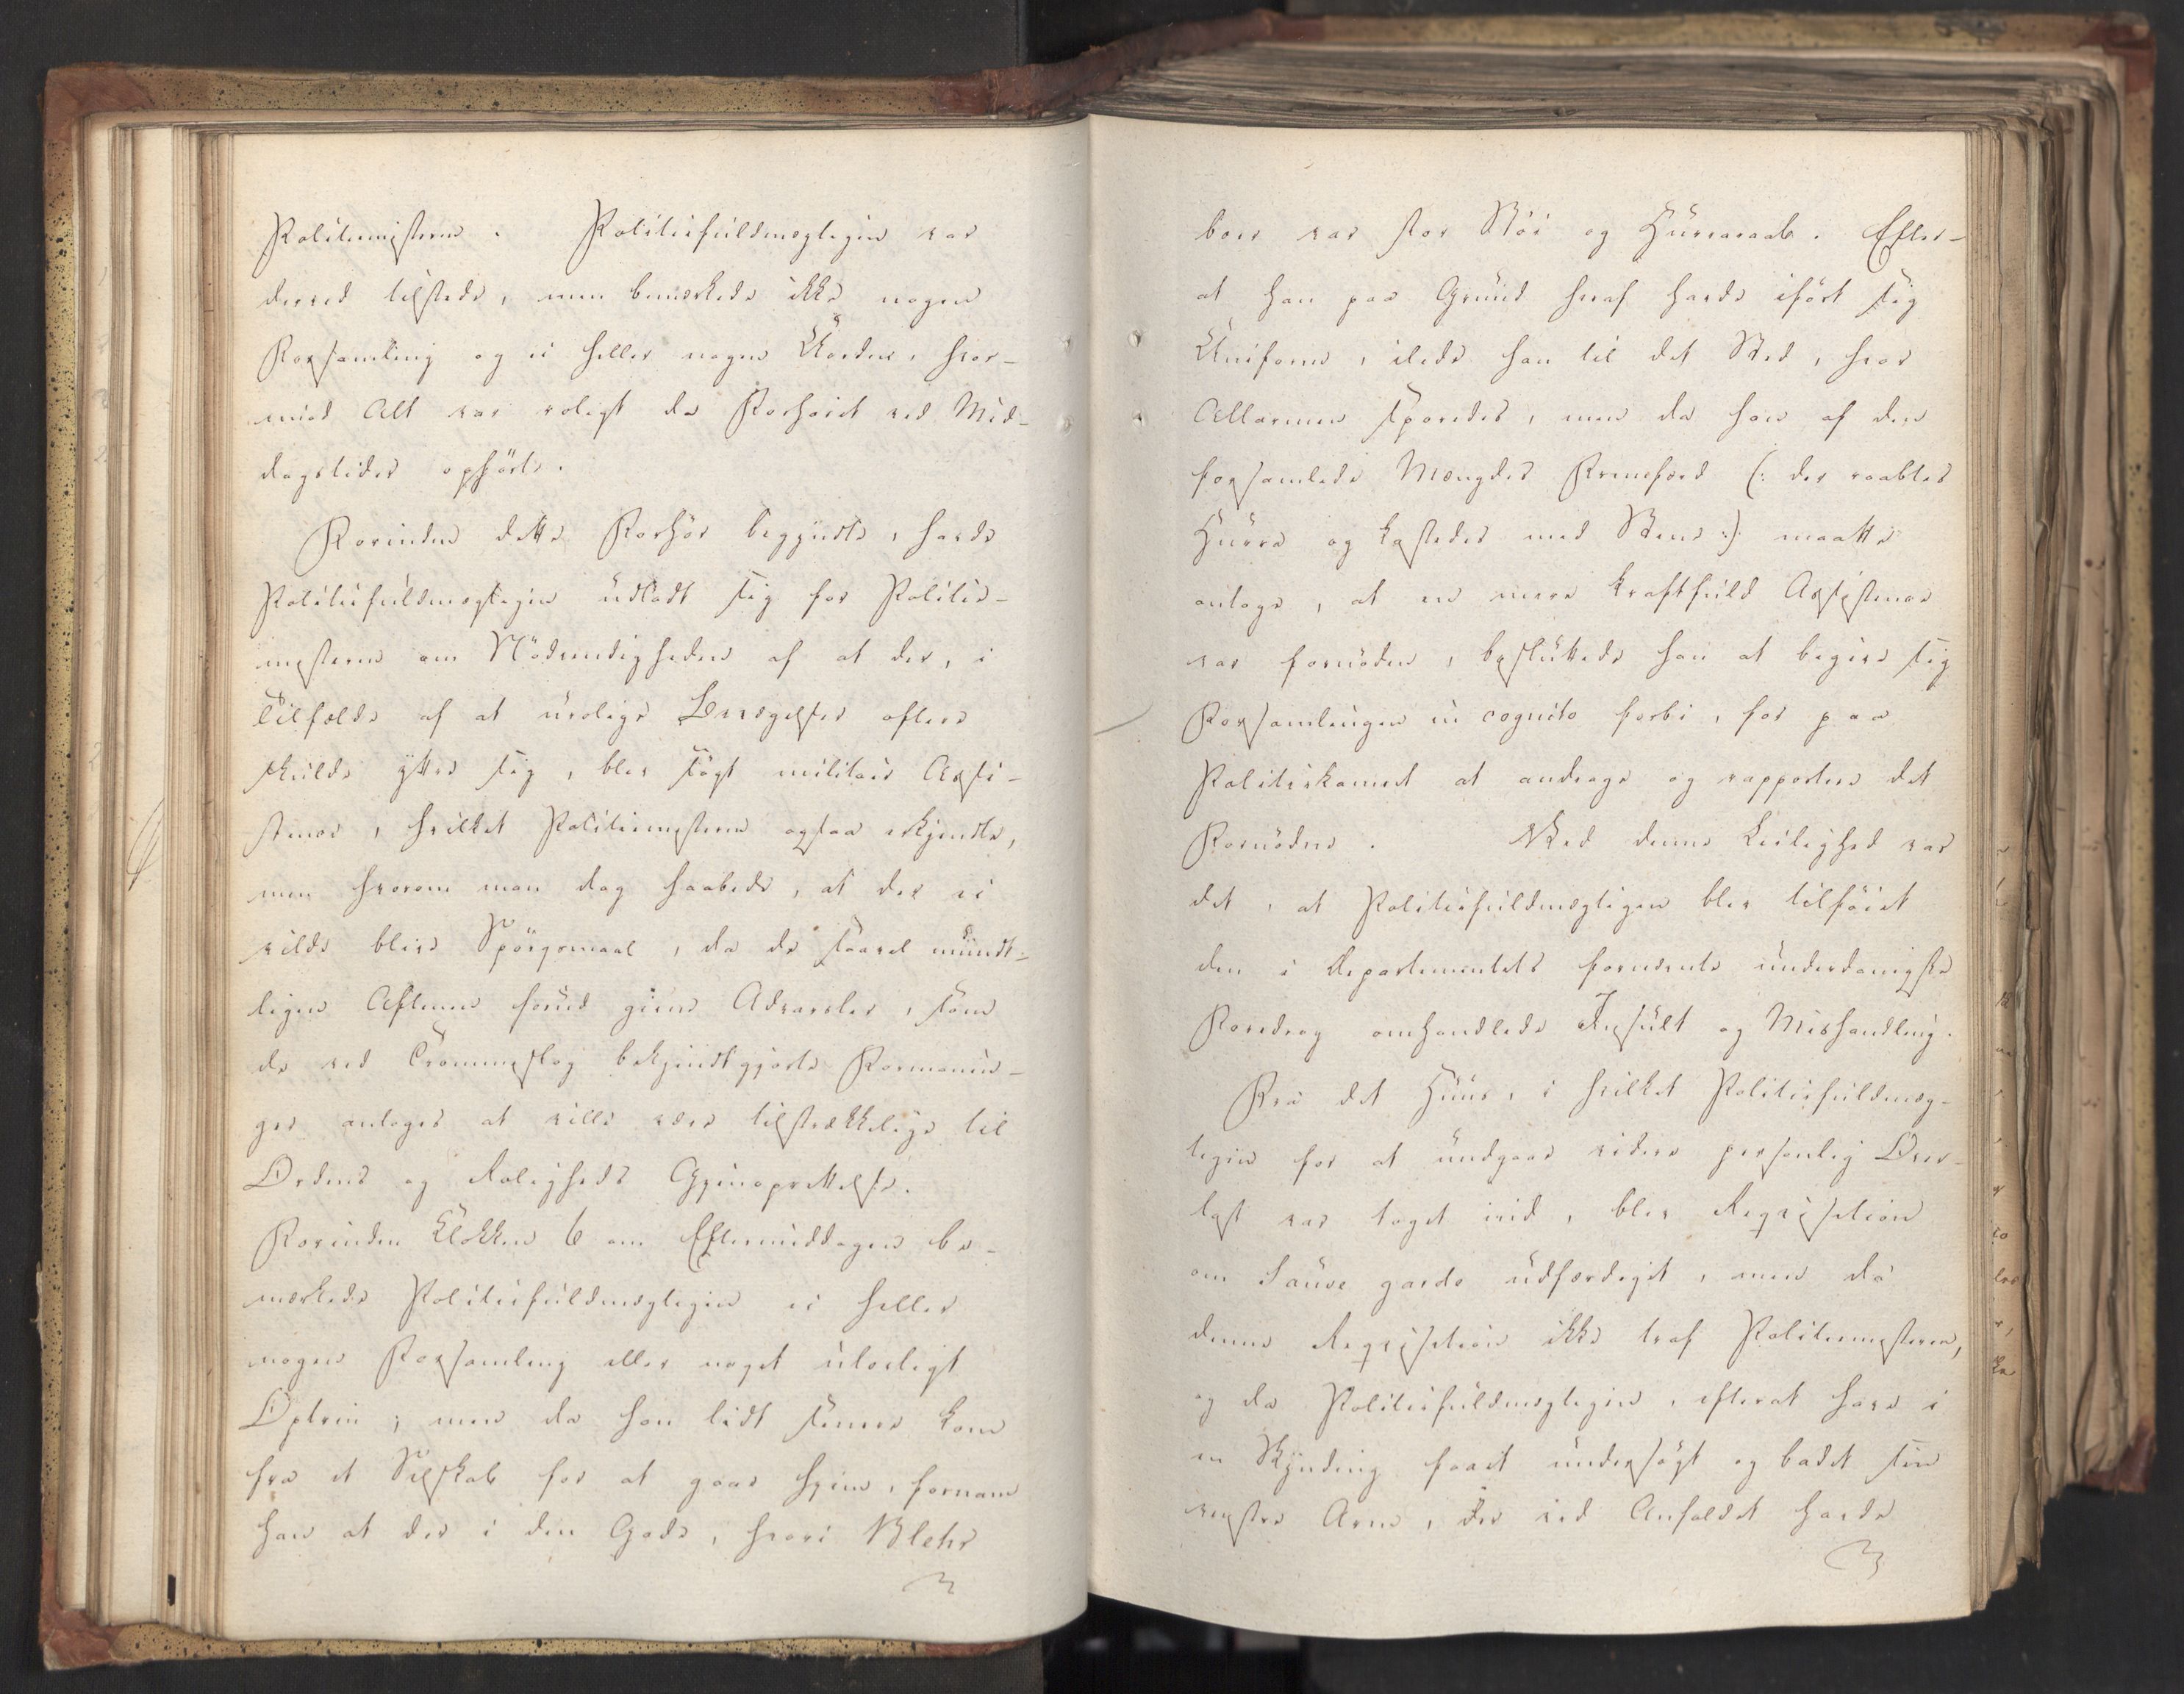 Politiemesteren. Politiefuldmægtigen var
derved tilstede, men bemærkede ikke nogen
Forsamling og ei heller nogen Uorden, hvor-
imod Alt var roligt da Forhøret ved Mid-
dagstider ophørte.
Forinden dette Forhør begyndte, havde
Politiefuldmægtigen udladt sig for Politie-
mesteren om Nödvendigheden af at der, i
Tilfælde af at urolige Bevægelser oftere
skulde yttre sig, blev sögt militair Assi-
stence, hvilket Politiemesteren ogsaa erkjendte,
men hvorom man dog haabede, at der ei
vilde blive Spörgsmaal, da de saavel mundt-
ligen Aftenen forud givne Advarsler, som
de ved Trommeslag bekjendtgjorte Formanin-
ger antoges at ville være tilstrækkelige til
Ordens og Roligheds Gjenoprettelse.
Forinden Klokken 6 om Eftermiddagen be-
mærkede Politiefuldmægtigen ei heller
nogen Forsamling eller noget ulovligt
Optrin; men da han lidt senere kom
fra et Selskab for at gaae hjem, fornam
han at der i den Gade, hvori Blehr
boer var stor Stöi og Hurraraab. Efter-
at han paa Grund heraf havde ifört sig
Uniform, ilede han til det Sted, hvor
Allarmen sporedes, men da han af den
forsamlede Mængdes Fremfærd (: der raabtes
Hurra og kastedes med Stene :) maatte
antage, at en mere kraftfuld Assistence
var fornöden, besluttede han at begive sig
Forsamlingen in cognito forbi, for paa
Politiekameret at andrage og rapportere det
Fornödne. Ved denne Leilighed var
det, at Politiefuldmægtigen blev tilföiet
den i Departementets fornævnte underdanigste
Foredrag omhandlede Insult og Mishandling.
Fra det Huus, i hvilket Politiefuldmæg-
tigen for at undgaae videre personlig Over-
last var taget ind, blev Reqvisition
om Sauve garde udfærdiget, men da
denne Reqvisition ikke traf Politiemesteren,
og da Politiefuldmægtigen, efterat have i
en Skynding faaet undersögt og badet sin
venstre Arm, der ved Anfaldet havde